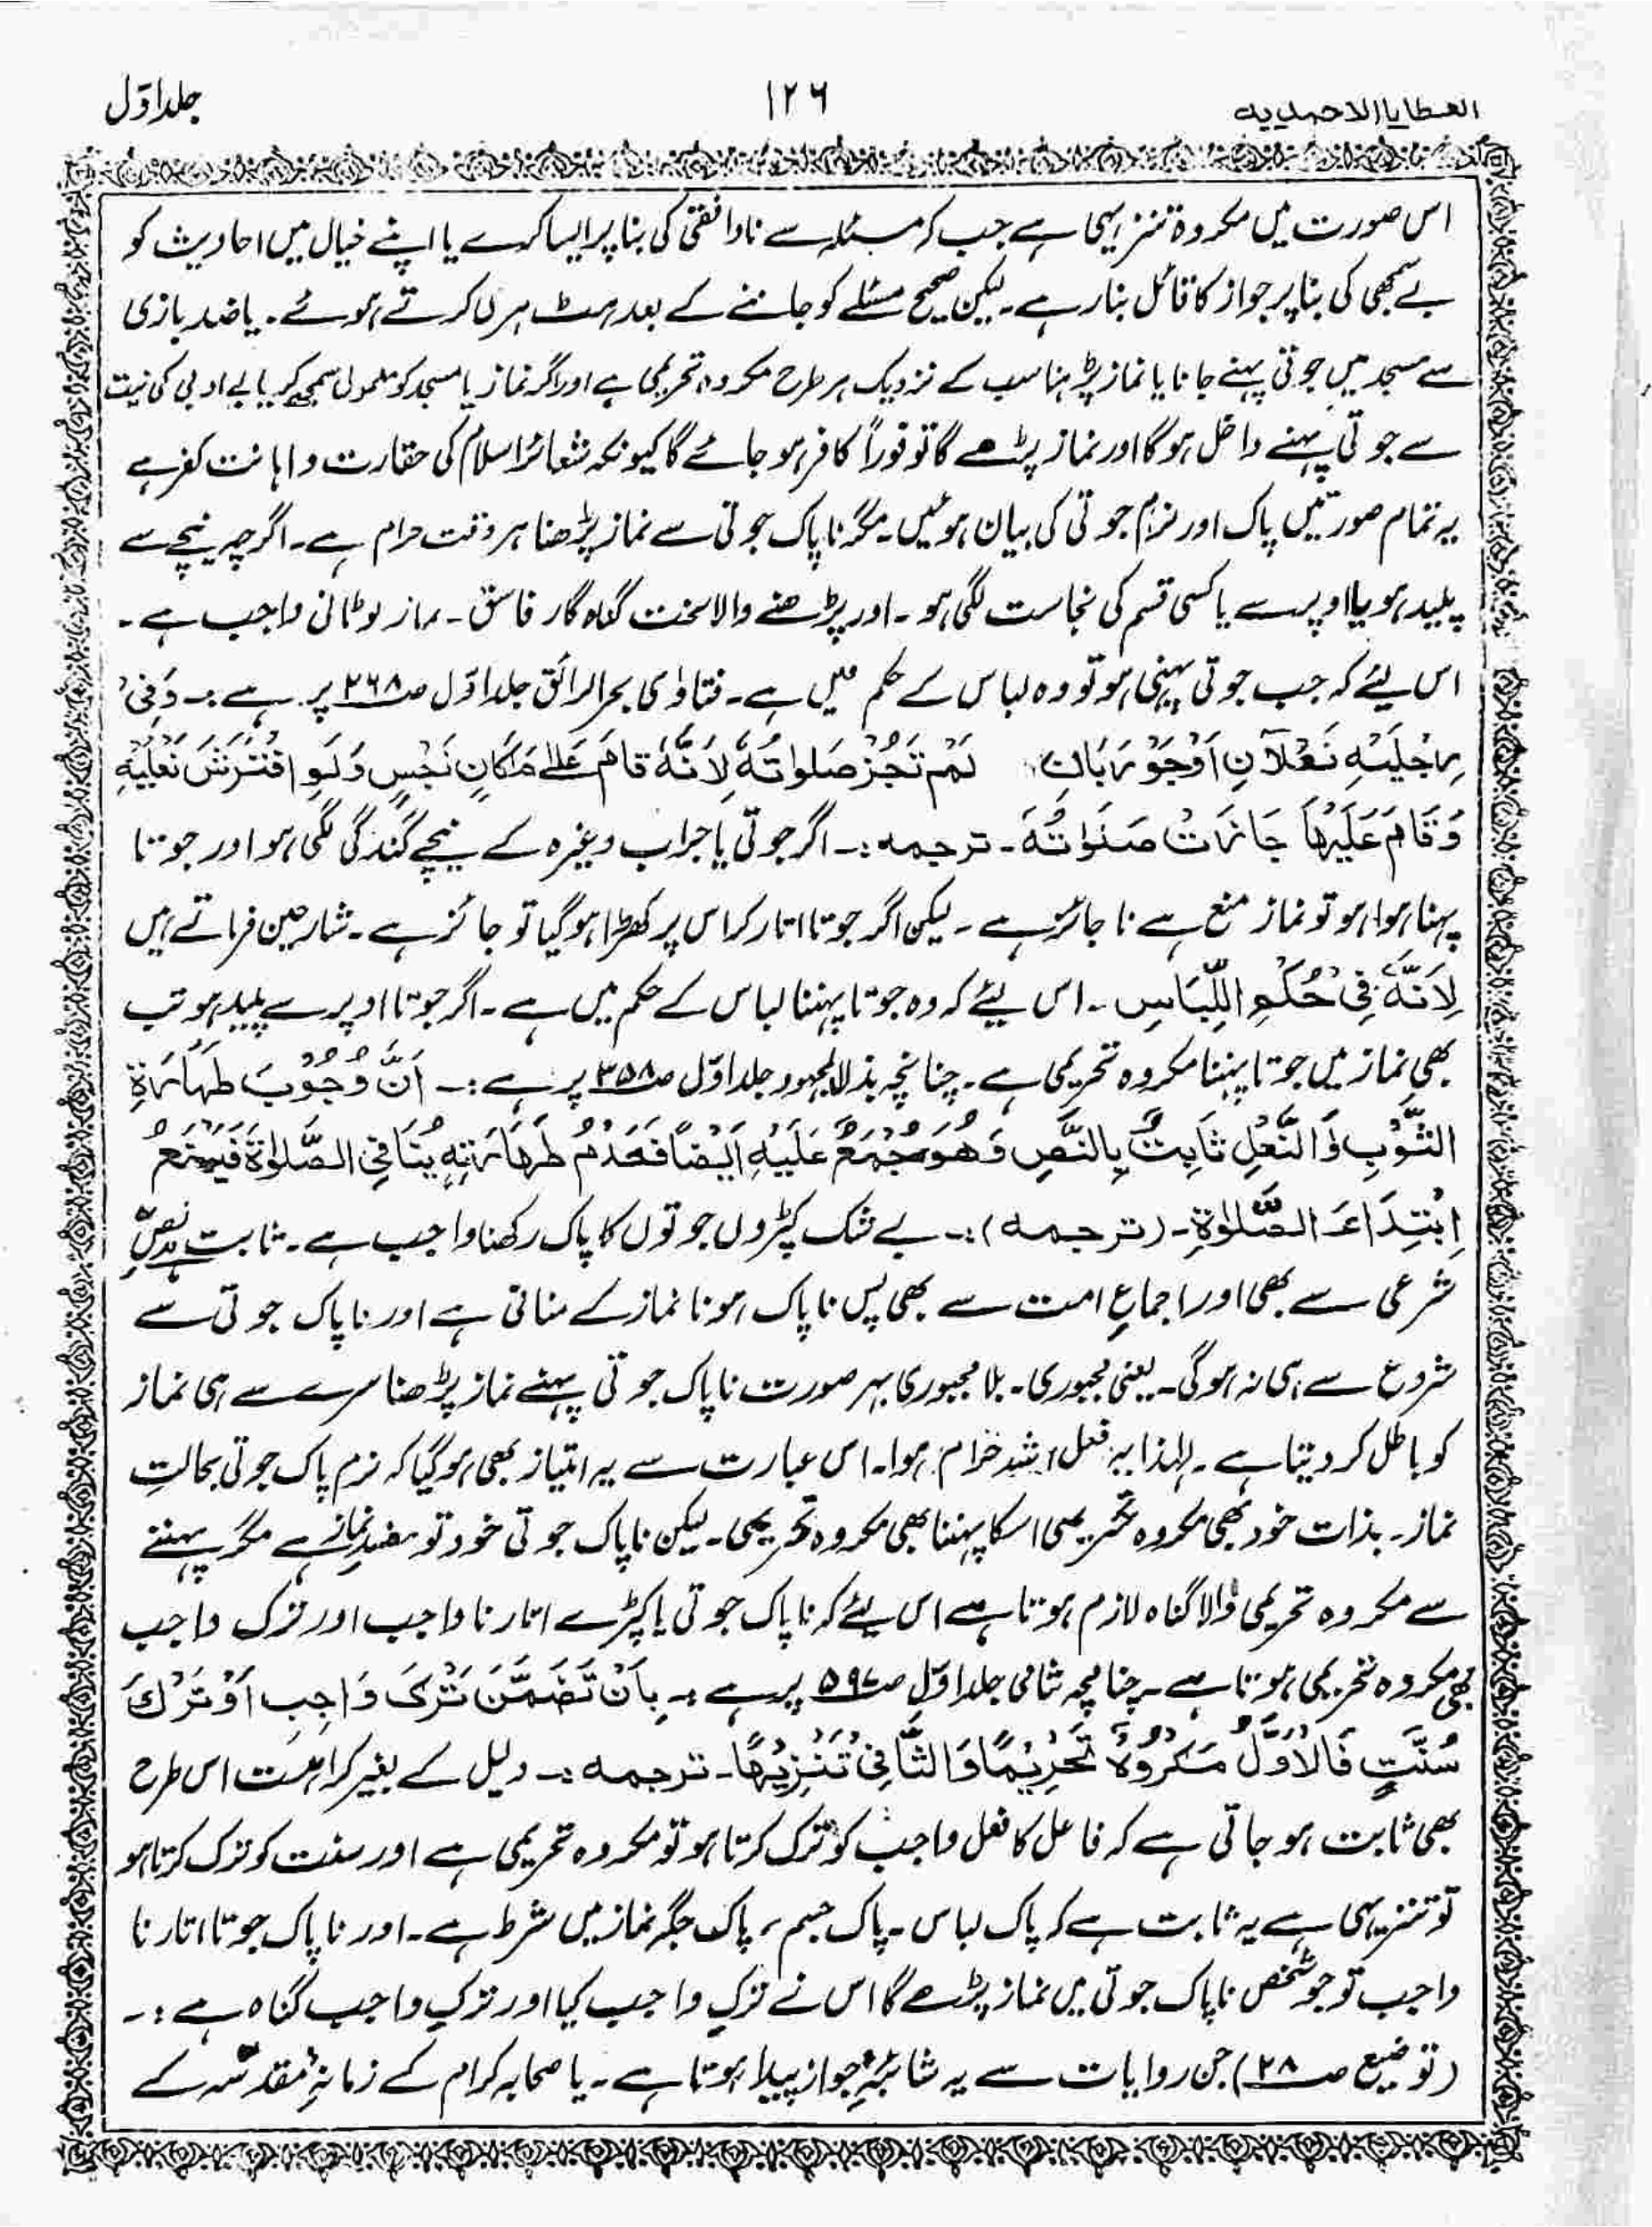 العطايا الاحمديه
١٢٦
جلد اوّل
اس صورت میں مکروہ تنزیہی ہے جب کہ مسئلہ سے ناواقفی کی بنا پر ایسا کرے یا اپنے خیال میں احادیث کو
بے سمجھی کی بنا پر جواز کا قائل بنا رہے۔ لیکن صحیح مسئلے کو جاننے کے بعد ہٹ دھرمی کرتے ہوئے۔ یا ضد بازی
سے مسجد میں جوتی پہنے جانا یا نماز پڑھنا سب کے نزدیک ہر طرح مکروہ تحریمی ہے اور اگر نماز یا مسجد کو معمولی سمجھ کر یا بے ادبی کی نیت
سے جوتی پہنے داخل ہوگا اور نماز پڑھے گا تو فوراً کافر ہو جائے گا کیونکہ شعائر اسلام کی حقارت و اہانت کفر ہے
یہ تمام صورتیں پاک اور نرم جوتی کی بیان ہوئیں۔ مگر ناپاک جوتی سے نماز پڑھنا ہر وقت حرام ہے۔ اگرچہ نیچے سے
پلید ہو یا اوپر سے یا کسی قسم کی نجاست لگی ہو۔ اور پڑھنے والا سخت گناہ گار فاسق۔ نماز لوٹانی واجب ہے۔
اس لیئے کہ جب جوتی پہنی ہو تو وہ لباس کے حکم میں ہے۔ فتاوای بحر الرائق جلد اوّل ص۲۶۸ پر ہے :۔ وَفِیْ
رِجْلَیْہِ نَعْلَانِ اَوْ جَوْرَبَانِ لَمْ تَجُزْ صَلٰوتُہٗ لِاَنَّہٗ قَامَ عَلٰی مَکَانٍ نَجِسٍ وَلَوِ افْتَرَشَ نَعْلَیْہِ
وَقَامَ عَلَیْھَا جَازَتْ صَلٰوتُہٗ۔ ترجمہ :۔ اگر جوتی یا جراب وغیرہ کے نیچے گندگی لگی ہو اور جوتا
پہنا ہوا ہو تو نماز منع ہے ناجائز ہے۔ لیکن اگر جوتا اتار کر اس پر کھڑا ہوگیا تو جائز ہے۔ شارحین فرماتے ہیں
لِاَنَّہٗ فِیْ حُکْمِ اللِّبَاسِ۔ اس لیئے کہ وہ جوتا پہننا لباس کے حکم میں ہے۔ اگر جوتا اوپر سے پلید ہو تب
بھی نماز میں جوتا پہننا مکروہ تحریمی ہے۔ چنانچہ بذل المجہود جلد اوّل ص۳۵۸ پر ہے :۔ اَنَّ وُجُوْبَ طَھَارَۃِ
الثَّوْبِ وَالنَّعْلِ ثَابِتٌ بِالنَّصِّ وَھُوَ مُجْمَعٌ عَلَیْہِ اَیْضًا فَعَدْمُ طَھَارَتِہٖ یُنَافِی الصَّلٰوۃَ فَیَمْنَعُ
اِبْتِدَاءَ الصَّلٰوۃِ۔ (ترجمہ) :۔ بے شک کپڑوں جوتوں کا پاک رکھنا واجب ہے۔ ثابت ہے نصِّ
شرعی سے بھی اور اجماعِ امت سے بھی پس ناپاک ہونا نماز کے منافی ہے اور ناپاک جوتی سے
شروع سے ہی نہ ہوگی۔ یعنی مجبوری۔ بلا مجبوری بہر صورت ناپاک جوتی پہنے نماز پڑھنا سرے سے ہی نماز
کو باطل کر دیتا ہے۔ لہٰذا یہ فعل اشد حرام ہوا۔ اس عبارت سے یہ امتیاز بھی ہوگیا کہ نرم پاک جوتی بحالتِ
نماز۔ بذات خود بھی مکروہ تحریمی اسکا پہننا بھی مکروہ تحریمی۔ لیکن ناپاک جوتی خود تو مفسدِ نماز ہے مگر پہننے
سے مکروہ تحریمی والا گناہ لازم ہوتا ہے اس لیئے کہ ناپاک جوتی یا کپڑے اتارنا واجب اور ترک واجب
بھی مکروہ تحریمی ہوتا ہے۔ چنانچہ شامی جلد اوّل ص۵۹۷ پر ہے :۔ بِاَنْ تَضَمَّنَ تَرْکَ وَاجِبٍ اَوْ تَرْكَ
سُنَّتٍ فَالْاَوَّلُ مَکْرُوْہٌ تَحْرِیْمًا وَالثَّانِیْ تَنْزِیْھًا۔ ترجمہ :۔ دلیل کے بغیر کراہت اس طرح
بھی ثابت ہو جاتی ہے کہ فاعل کا فعل واجب کو ترک کرتا ہو تو مکروہ تحریمی ہے اور سنت کو ترک کرتا ہو
تو تنزیہی ہے یہ ثابت ہے کہ پاک لباس۔ پاک جسم، پاک جگہ نماز میں شرط ہے۔ اور ناپاک جوتا اتارنا
واجب تو جو شخص ناپاک جوتی میں نماز پڑھے گا اس نے ترکِ واجب کیا اور ترکِ واجب گناہ ہے :۔
(توضیح ص۲۸) جن روایات سے یہ شائبۂ جواز پیدا ہوتا ہے۔ یا صحابہ کرام کے زمانۂ مقدسّہ کے